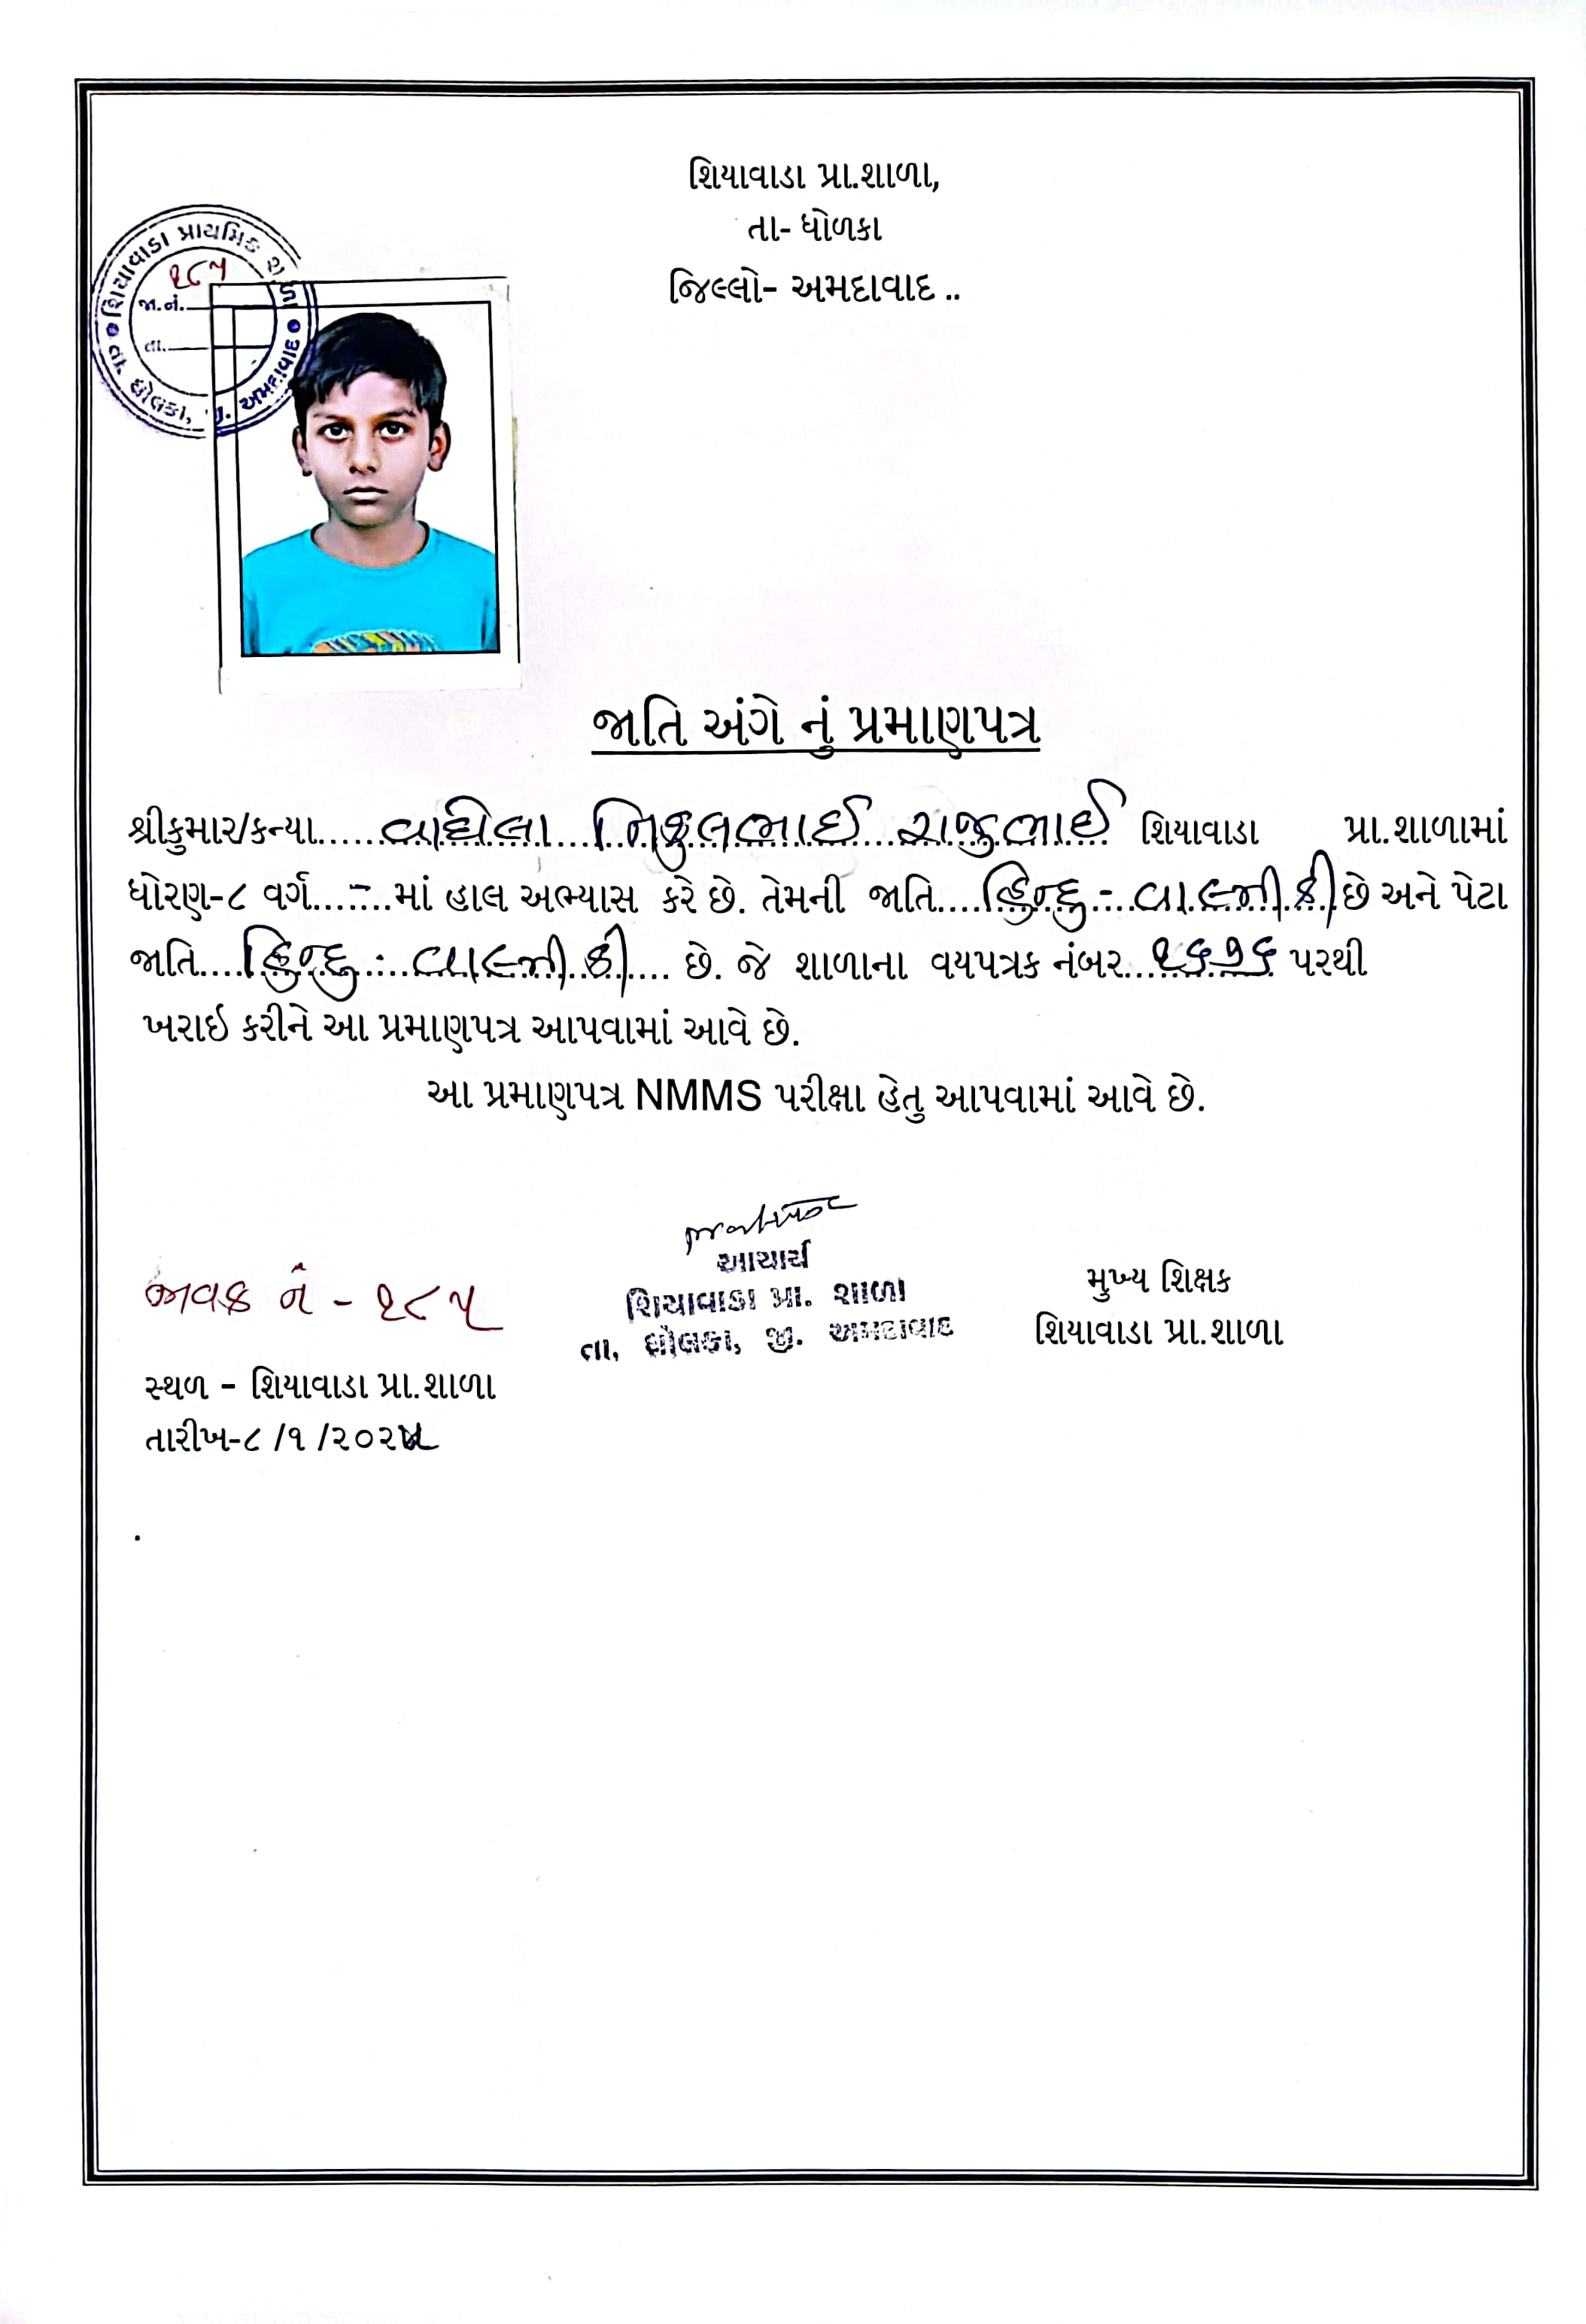 શિયાવાડા પ્રા.શાળા,
તા- ધોળકા
જિલ્લો- અમદાવાદ ..
શિયાવાડા પ્રાથમિક શાળા
તા. ધોલકા, જી. અમદાવાદ
૧૮૫
જા.નં.
તા.
જાતિ અંગે નું પ્રમાણપત્ર
શ્રીકુમાર/કન્યા.....વાઘેલા નિકુલભાઈ રાજુભાઈ શિયાવાડા પ્રા.શાળામાં
ધોરણ-૮ વર્ગ...-...માં હાલ અભ્યાસ કરે છે. તેમની જાતિ....હિન્દુ - વાલ્મીકી છે અને પેટા
જાતિ....હિન્દુ - વાલ્મીકી.... છે. જે શાળાના વયપત્રક નંબર...૧૬૭૬ પરથી
ખરાઇ કરીને આ પ્રમાણપત્ર આપવામાં આવે છે.
આ પ્રમાણપત્ર NMMS પરીક્ષા હેતુ આપવામાં આવે છે.
આચાર્ય
શિયાવાડા પ્રા. શાળા
તા, ધોલકા, જી. અમદાવાદ
મુખ્ય શિક્ષક
શિયાવાડા પ્રા.શાળા
જાવક નં - ૧૮૫
સ્થળ - શિયાવાડા પ્રા.શાળા
તારીખ-૮ /૧ /૨૦૨૫